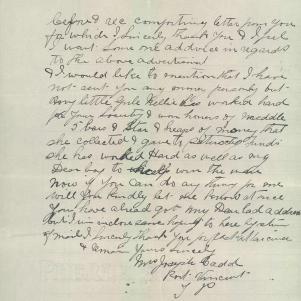 before & rec comforting letter from you
for which I sincerely thank you & I feel
I want some one addvice in regards
to the above advertisment
& I would like to mention that I have
not sent you any money personly but
my little Girle Nellie has worked hard
for your Society & won hours of meddle
& Bars & Star & heaps of money that
she collected & gave to funds
she has worked Hard as well as my
Dear boy to win the war
Now if you can do any thing for me
will you kindly let me know at once
you have already got my Dear Lad address
but I in close same hoping to here by return
of mail I sincerely thank you for
& Remain yours sincerely
Mrs Joseph Cadd
Port Vincent